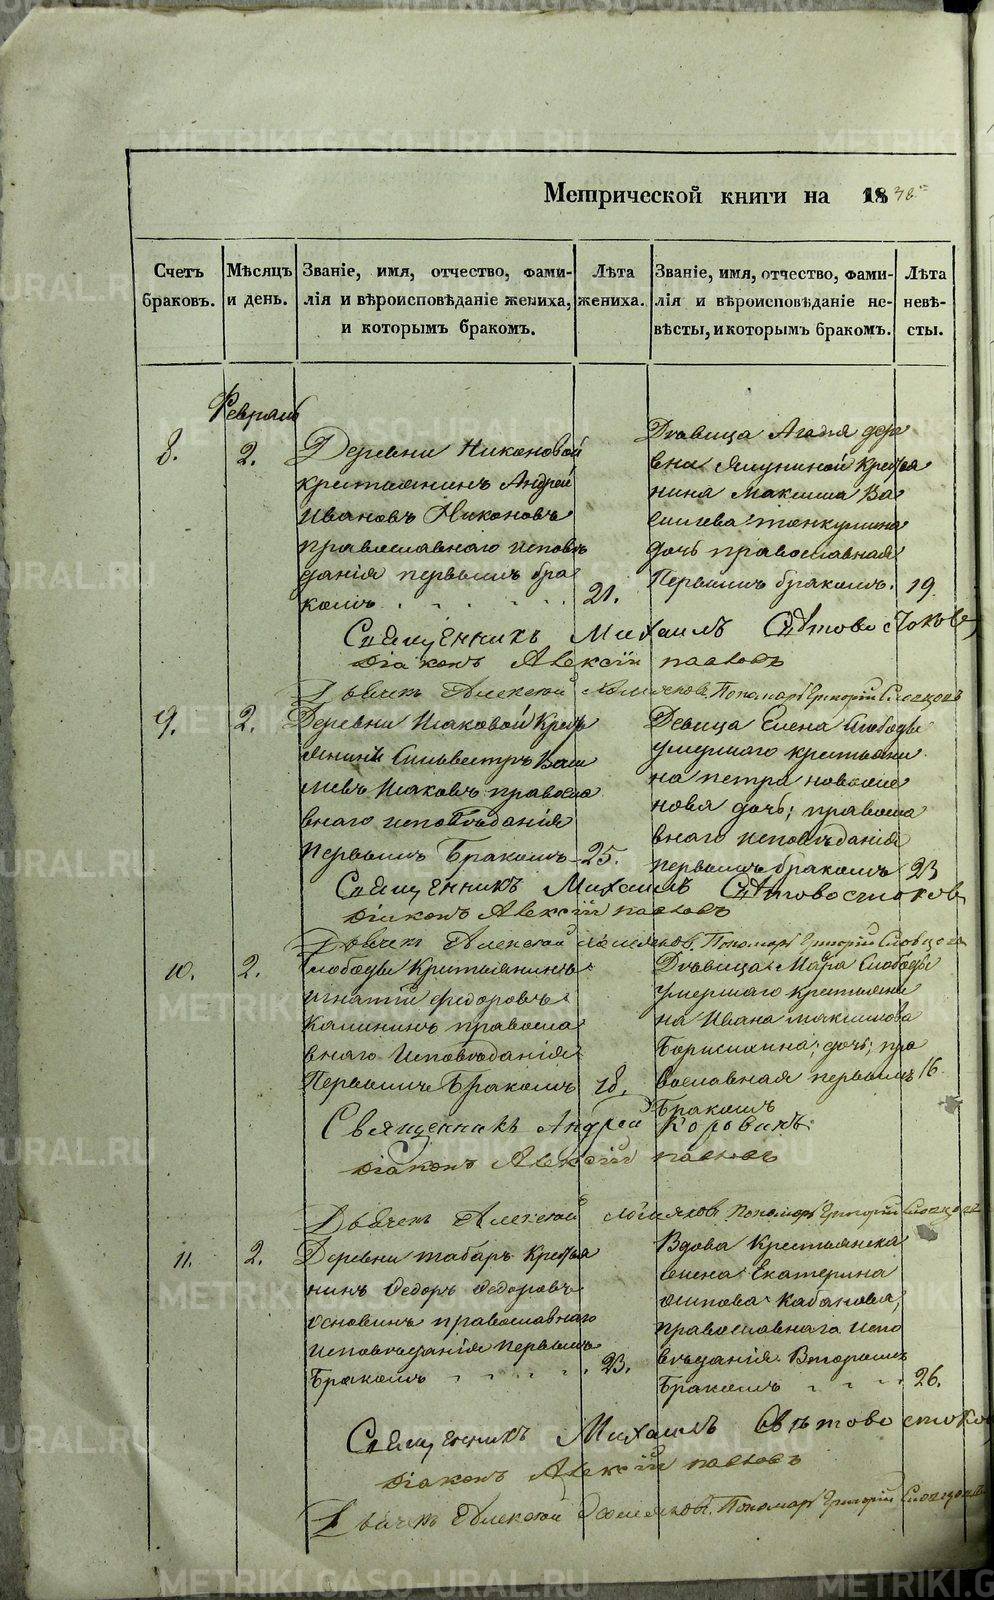 Метрической книги на 1838
Счетъ браковъ.
Мѣсяцъ и день.
Званіе, имя, отчество, фами-
лія и вѣроисповѣданіе жениха,
и которымъ бракомъ.
Лѣта
жениха.
Званіе, имя, отчество, фами-
лія и вѣроисповѣданіе не-
вѣсты, и которымъ бракомъ.
Лѣта
невѣ-
сты.
Февраль
8.
2.
Деревни Никоновой
крестьянинъ Андрей
Ивановъ Никоновъ
православнаго исповѣ
данія первымъ бра
комъ
21.
Дѣвица Агафья дере
вни Ялуниной крестья
нина Максима Ва
сильева
дочь православная
Первымъ бракомъ.
19.
Священникъ Михаилъ Свѣтовостоковъ
Діаконъ Алексій Павловъ
Дьячекъ Алексей Хомяковъ. Пономарь Григорій Словцовъ
9.
2.
Деревни Исаковой Кресть
янинъ Сильвестръ Васи
льевъ Исаковъ правосла
внаго исповѣданія
Первымъ Бракомъ
25.
Девица Елена Слободы
умершаго крестьяни
на петра новосело
нова дочь; правосла
внаго исповѣданія
первымъ бракомъ
23
Священникъ Михаилъ Свѣтовостоковъ
Діаконъ Алексій Павловъ
Дьячекъ Алексей Хомяковъ. Пономарь Григорій Словцовъ
10.
2.
Слободы Крестьянинъ
игнатій федоровъ
Калининъ правосла
внаго Исповѣданія
Первымъ Бракомъ
18.
Дѣвица Мавра Слободы
умершаго крестьяни
на Ивана максимова
Борисихина; дочь; пра
вославная первымъ
Бракомъ
16
Священникъ Андрей Коровинъ
Діаконъ Алексій Павловъ
Дьячекъ Алексей Хомяковъ Пономарь Григорій Словцовъ
11.
2.
Деревни табаръ Крестья
нинъ Федоръ Федоровъ
Основинъ православнаго
исповѣданія первымъ
Бракомъ
23.
Вдова Крестьянска
Жена Екатерина
Осипова Кабанова,
православнаго испо
вѣданія Вторымъ
Бракомъ
26.
Священникъ Михаилъ Свѣтовостоковъ
Діаконъ Алексій Павловъ
Дьячекъ Алексей Хомяковъ. Пономарь Григорій Словцовъ
METRIKI.GASO-URAL.RU